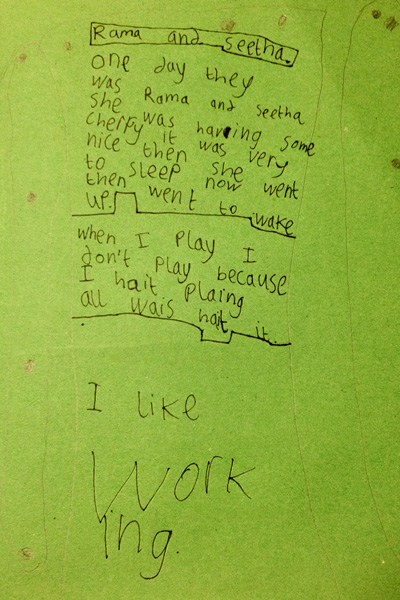 Rama and seetha.
one day they
was Rama and seetha
she was having some
cherpy it was very
nice then she
to sleep now went
then went to wake
up.
when I play I
don't play because
I hait plaing
all wais hait it.
I like
Work
ing.